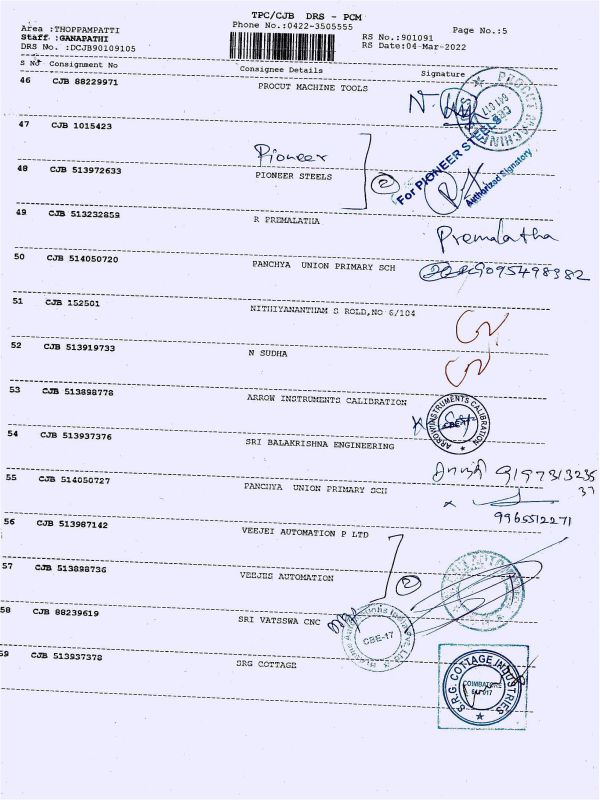 TPC/CJB DRS - PCM
Area :THOPPAMPATTI
Phone No.:0422-3505555
Page No.:5
Staff :GANAPATHI
RS No.:901091
DRS No. :DCJB90109105
RS Date:04-Mar-2022
S No Consignment No Consignee Details Signature
46 CJB 88229971 PROCUT MACHINE TOOLS
47 CJB 1015423 Pioneer
48 CJB 513972633 PIONEER STEELS 2
For PIONEER STEELS
Authorized Signatory
49 CJB 513232859 R PREMALATHA
Premalatha
50 CJB 514050720 PANCHYA UNION PRIMARY SCH 9095498382
51 CJB 152501 NITHIYANANTHAM S ROLD,NO 6/104
52 CJB 513919733 N SUDHA
53 CJB 513898778 ARROW INSTRUMENTS CALIBRATION
ARROW INSTRUMENTS CALIBRATION
54 CJB 513937376 SRI BALAKRISHNA ENGINEERING
55 CJB 514050727 PANCHYA UNION PRIMARY SCH
9965512271
56 CJB 513987142 VEEJEI AUTOMATION P LTD
57 CJB 513898736 VEEJES AUTOMATION 2
58 CJB 88239619 SRI VATSSWA CNC
CBE-17
59 CJB 513937378 SRG COTTAGE
S.R.G. COTTAGE INDUSTRIES
COIMBATORE
641 017